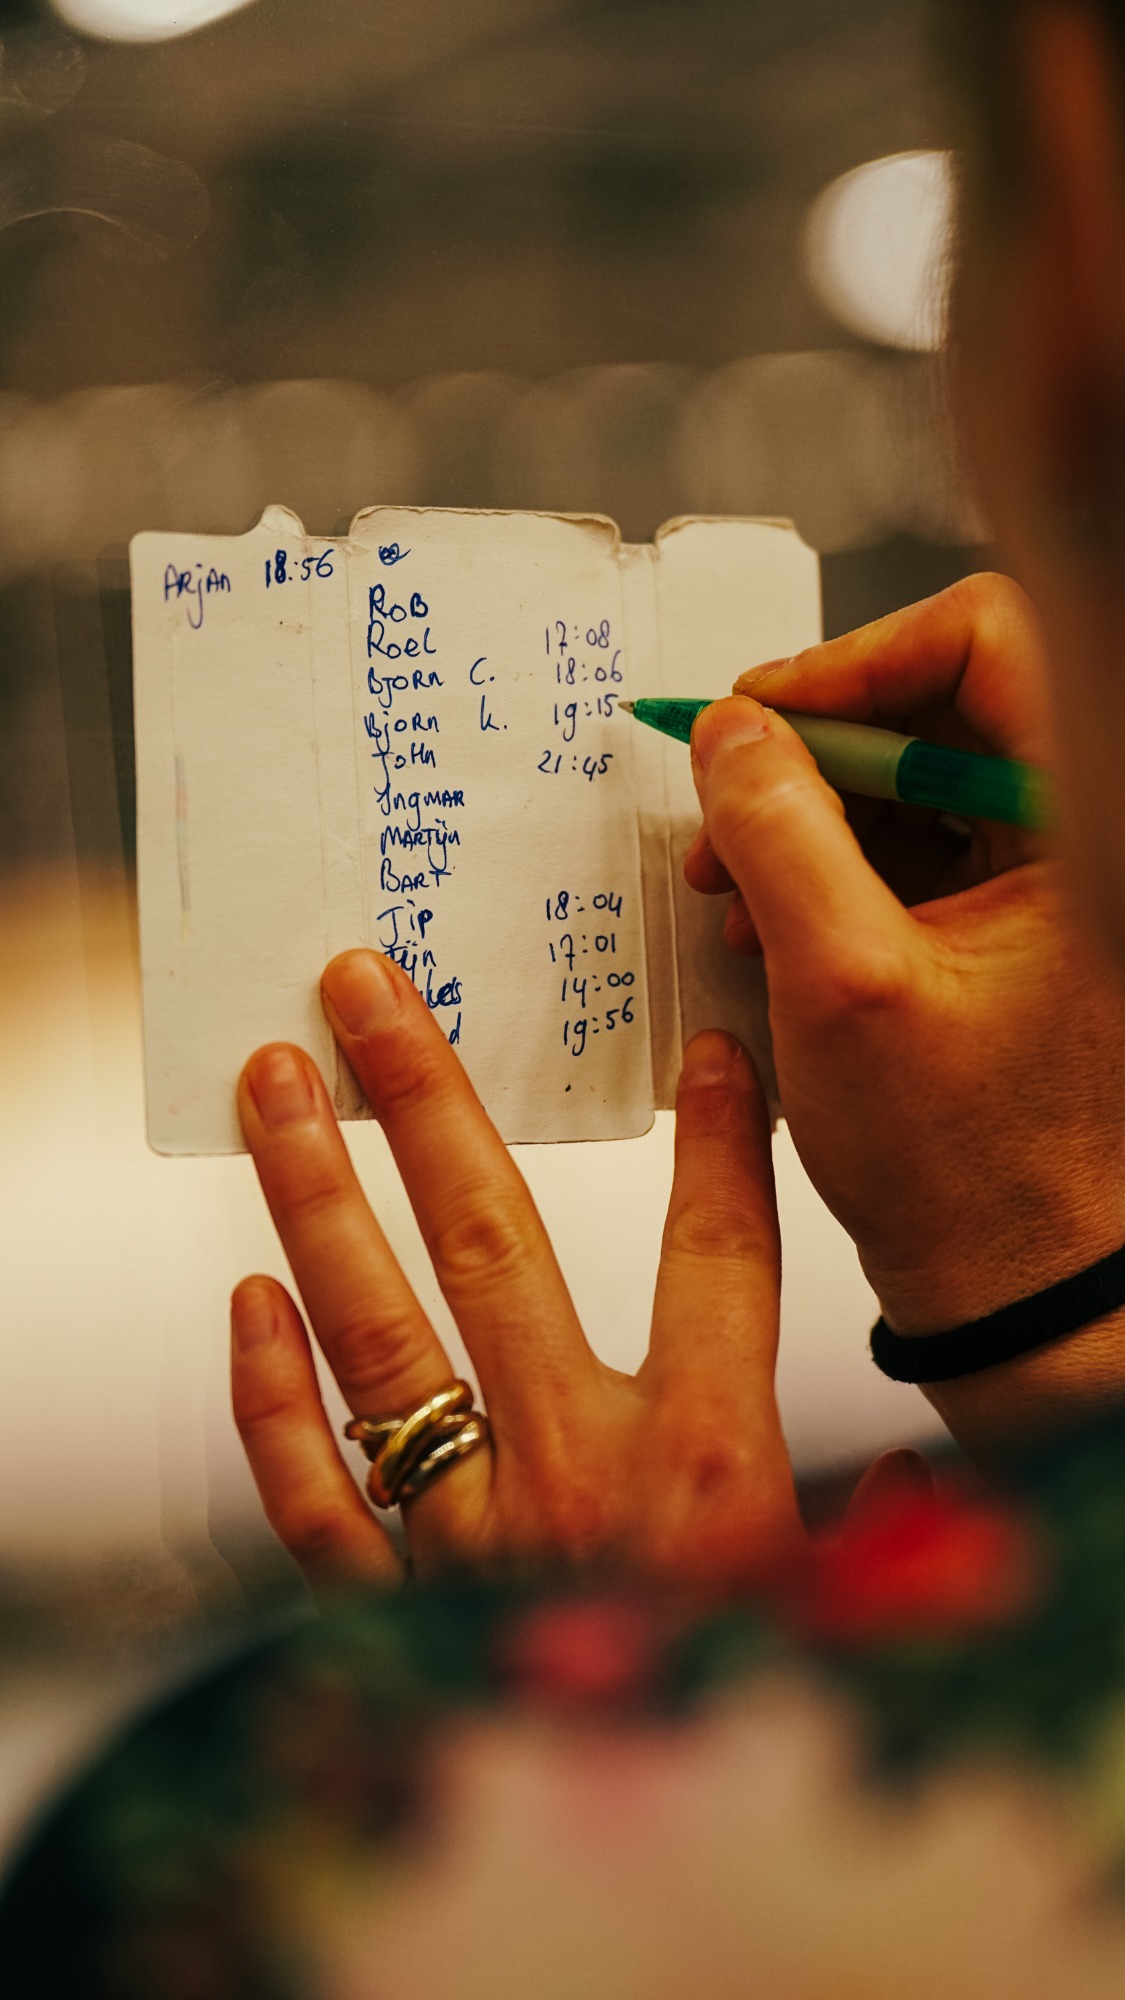 Arjan 18:56
Rob
Roel 17:08
Bjorn C. 18:06
Bjorn K. 19:15
John 21:45
Ingmar
Martijn
Bart
Jip 18:04
17:01
14:00
19:56